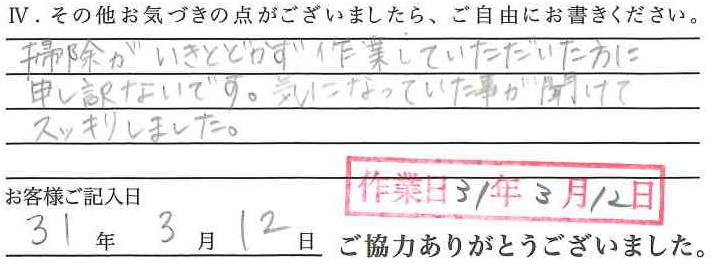 Ⅳ．その他お気づきの点がございましたら、ご自由にお書きください。
掃除がいきとどかず作業していただいた方に
申し訳ないです。気になっていた事が聞けて
スッキリしました。
お客様ご記入日
作業日31年3月12日
31年3月12日
ご協力ありがとうございました。